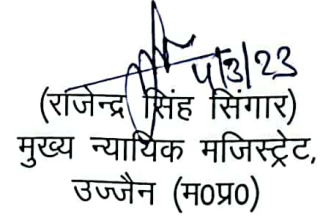 4/3/23
(राजेन्द्र सिंह सिंगार)
मुख्य न्यायिक मजिस्ट्रेट,
उज्जैन (म0प्र0)